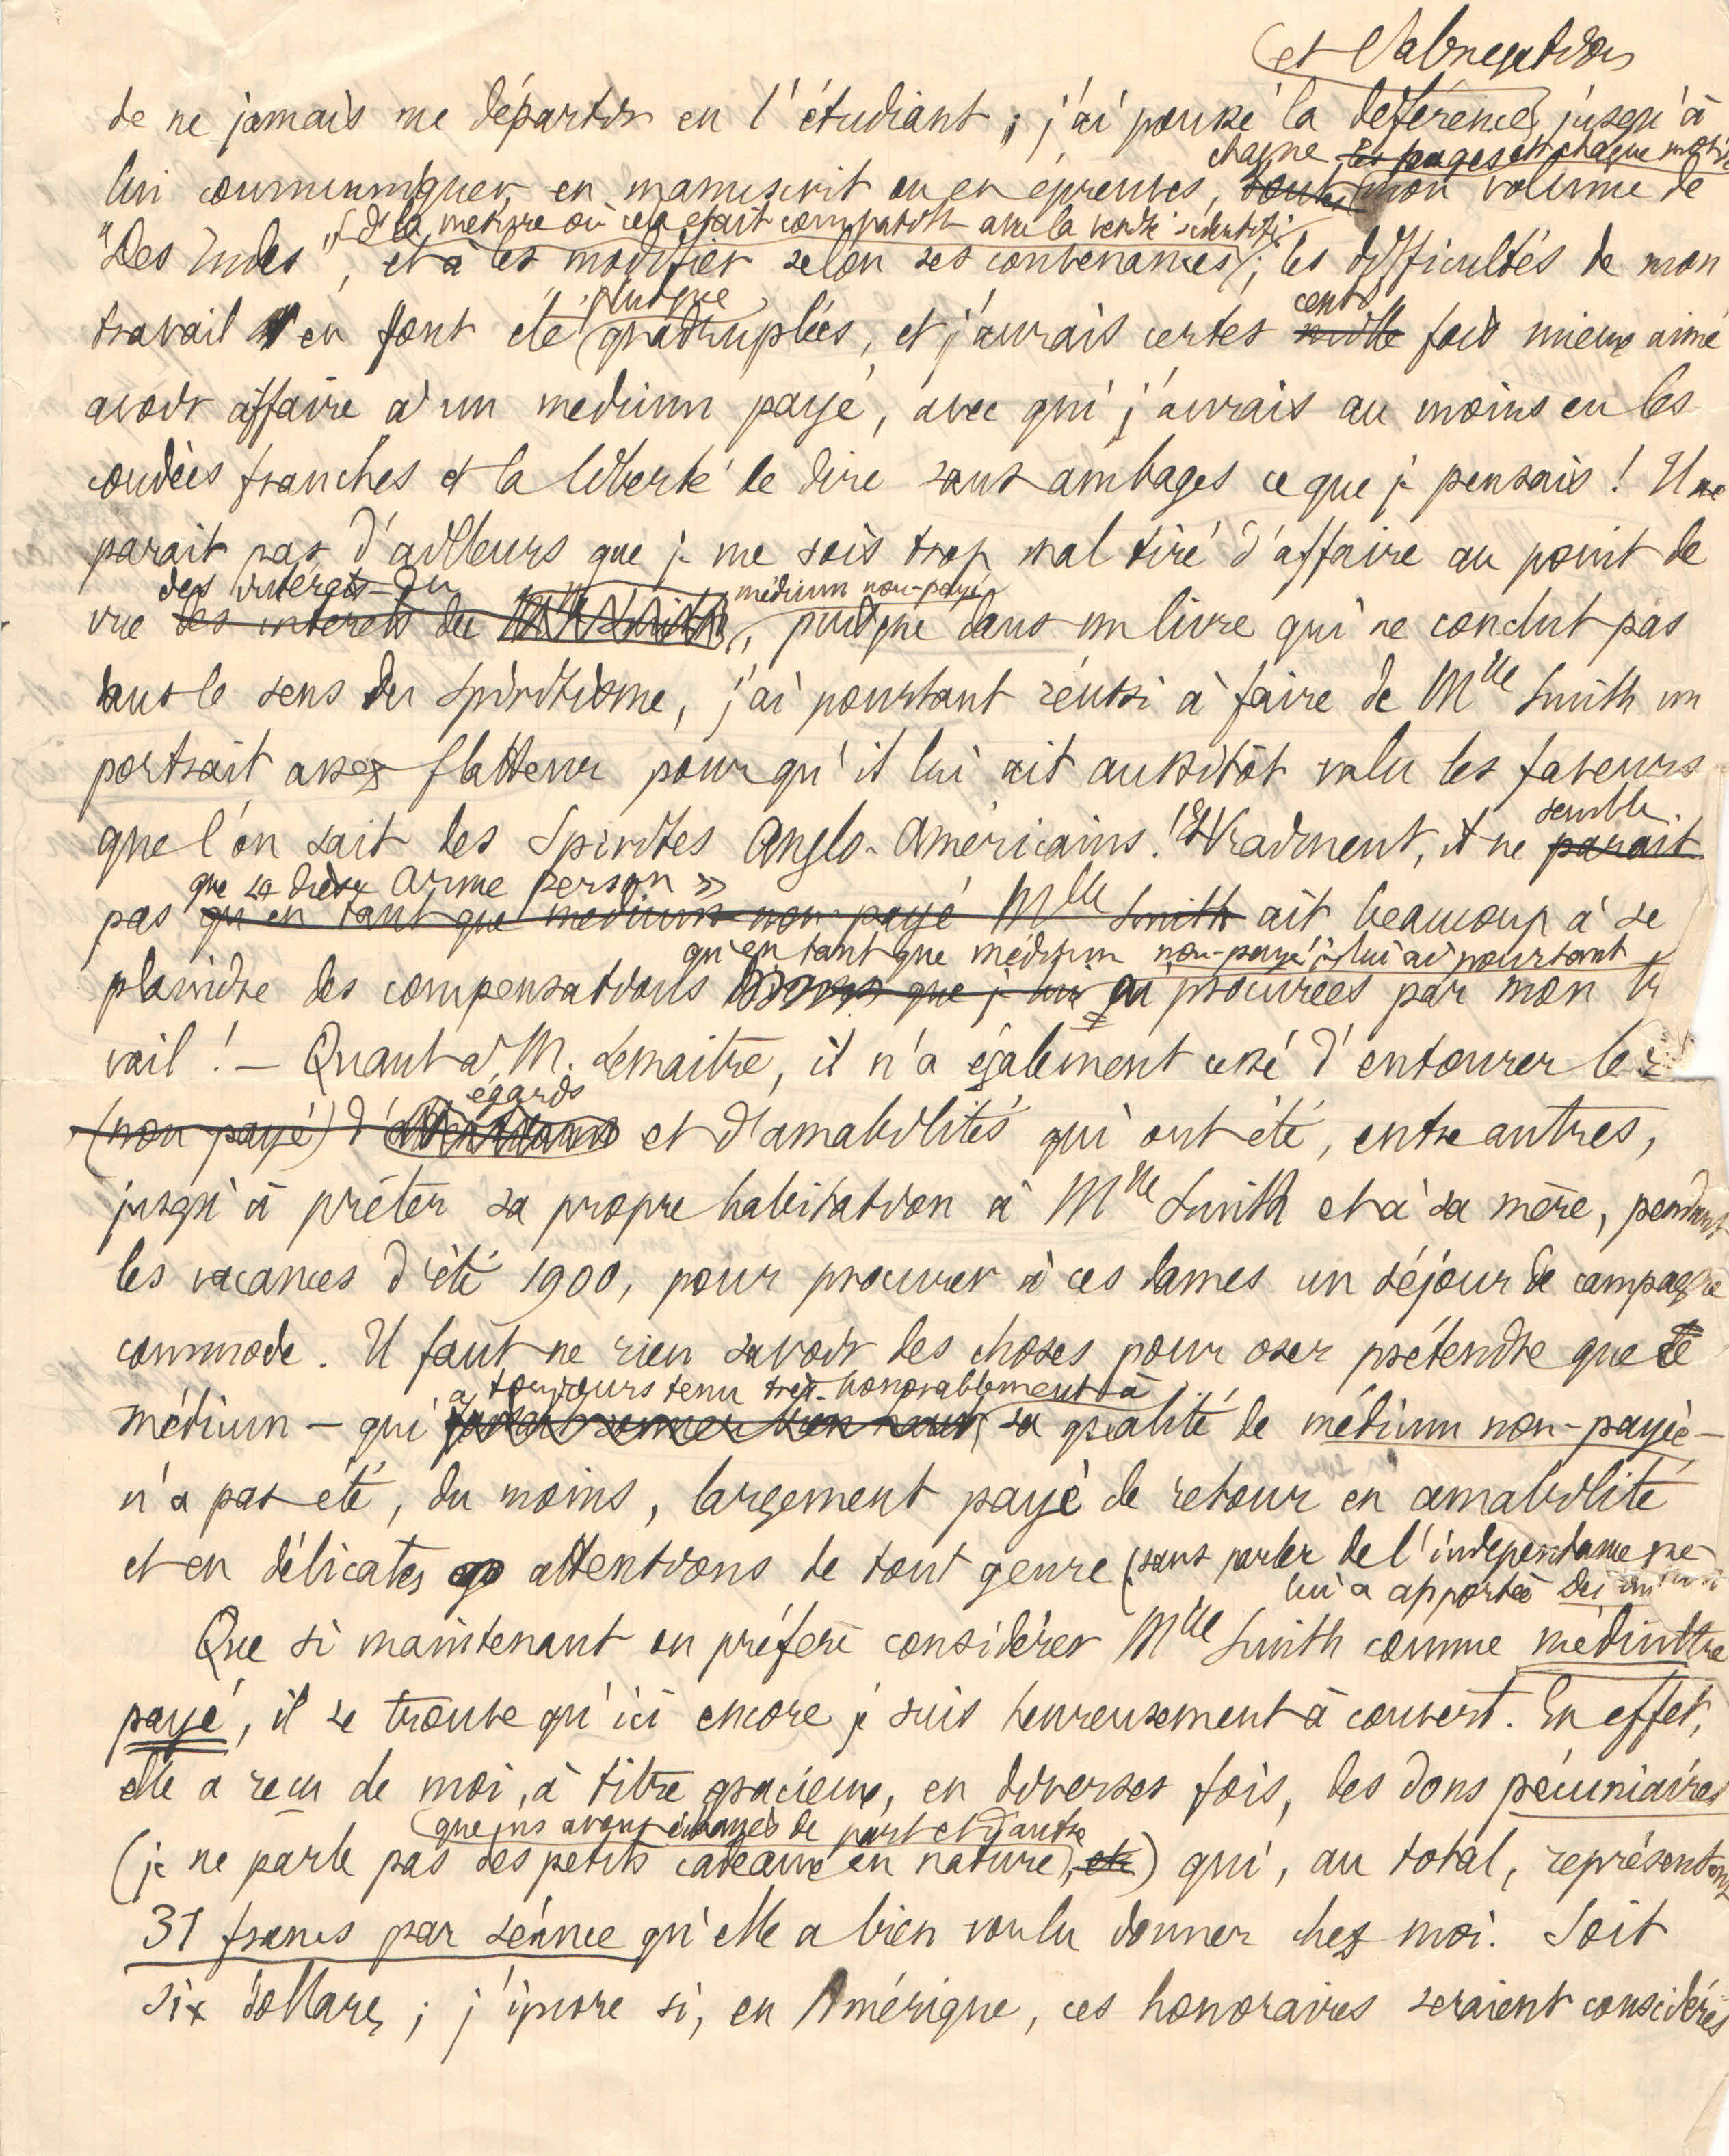 et l'abnégation
de ne jamais me départir en l'étudiant ; j'ai poussé la déférence jusqu'à
chaque les pages et chaque
lui communiquer, en manuscrit ou en épreuves, toutes mon volume de
ds la mesure où cela était compatible avec la vérité scientifiq
"Des Indes", et à les modifier selon ses convenances ; les difficultés de mon
plus que cent
travail en sont été quadruplées, et j'aurais certes mille fois mieux aimé
avoir affaire à un médium payé, avec qui j'aurais au moins eu les
coudées franches et la liberté de dire sans ambages ce que je pensais ! Il ne
parait pas d'ailleurs que je me sois trop mal tiré d'affaire au point de
des intérêts du médium non-payé
vue des intérêts du Mlle Smith, puisque dans un livre qui ne conclut pas
dans le sens du Spiritisme, j'ai pourtant réussi à faire de Mlle Smith un
portrait assez flatteur pour qu'il lui ait aussitôt valu les faveurs
que l'on sait des Spirites Anglo-Américains ! Vraiment, il ne parait
semble
que arme person »
pas qu'en tant que médium non-payé Mlle Smith ait beaucoup à se
qu'en tant que médium non-payé je lui ai pourtant
plaindre des compensations que je lui ai procurées par mon tr
vail ! — Quant à M. Lemaitre, il n'a également cessé d'entourer le
égards
(non payé) d'attentions et d'amabilités qui ont été, entre autres,
jusqu'à prêter sa propre habitation à Mlle Smith et à sa mère, pendant
les vacances d'été 1900, pour procurer à ces dames un séjour de campagne
commode. Il faut ne rien savoir des choses pour oser prétendre que ce
a toujours tenu très-honorablement à
médium — qui sa qualité de médium non-payé —
n'a pas été, du moins, largement payé de retour en amabilité
et en délicates attentions de tout genre (sans parler de l'indépendance que
lui a apportée Des
Que si maintenant on préfère considérer Mlle Smith comme médium
payé, il se trouve qu'ici encore je suis heureusement à couvert. En effet,
elle a reçu de moi, à titre gracieux, en diverses fois, des dons pécuniaires
que ns avons échangés de part et d'autre
(je ne parle pas des petits cadeaux en nature, etc) qui, au total, représentent
31 francs par séance qu'elle a bien voulu donner chez moi. Soit
six dollars ; j'ignore si, en Amérique, ces honoraires seraient considérés